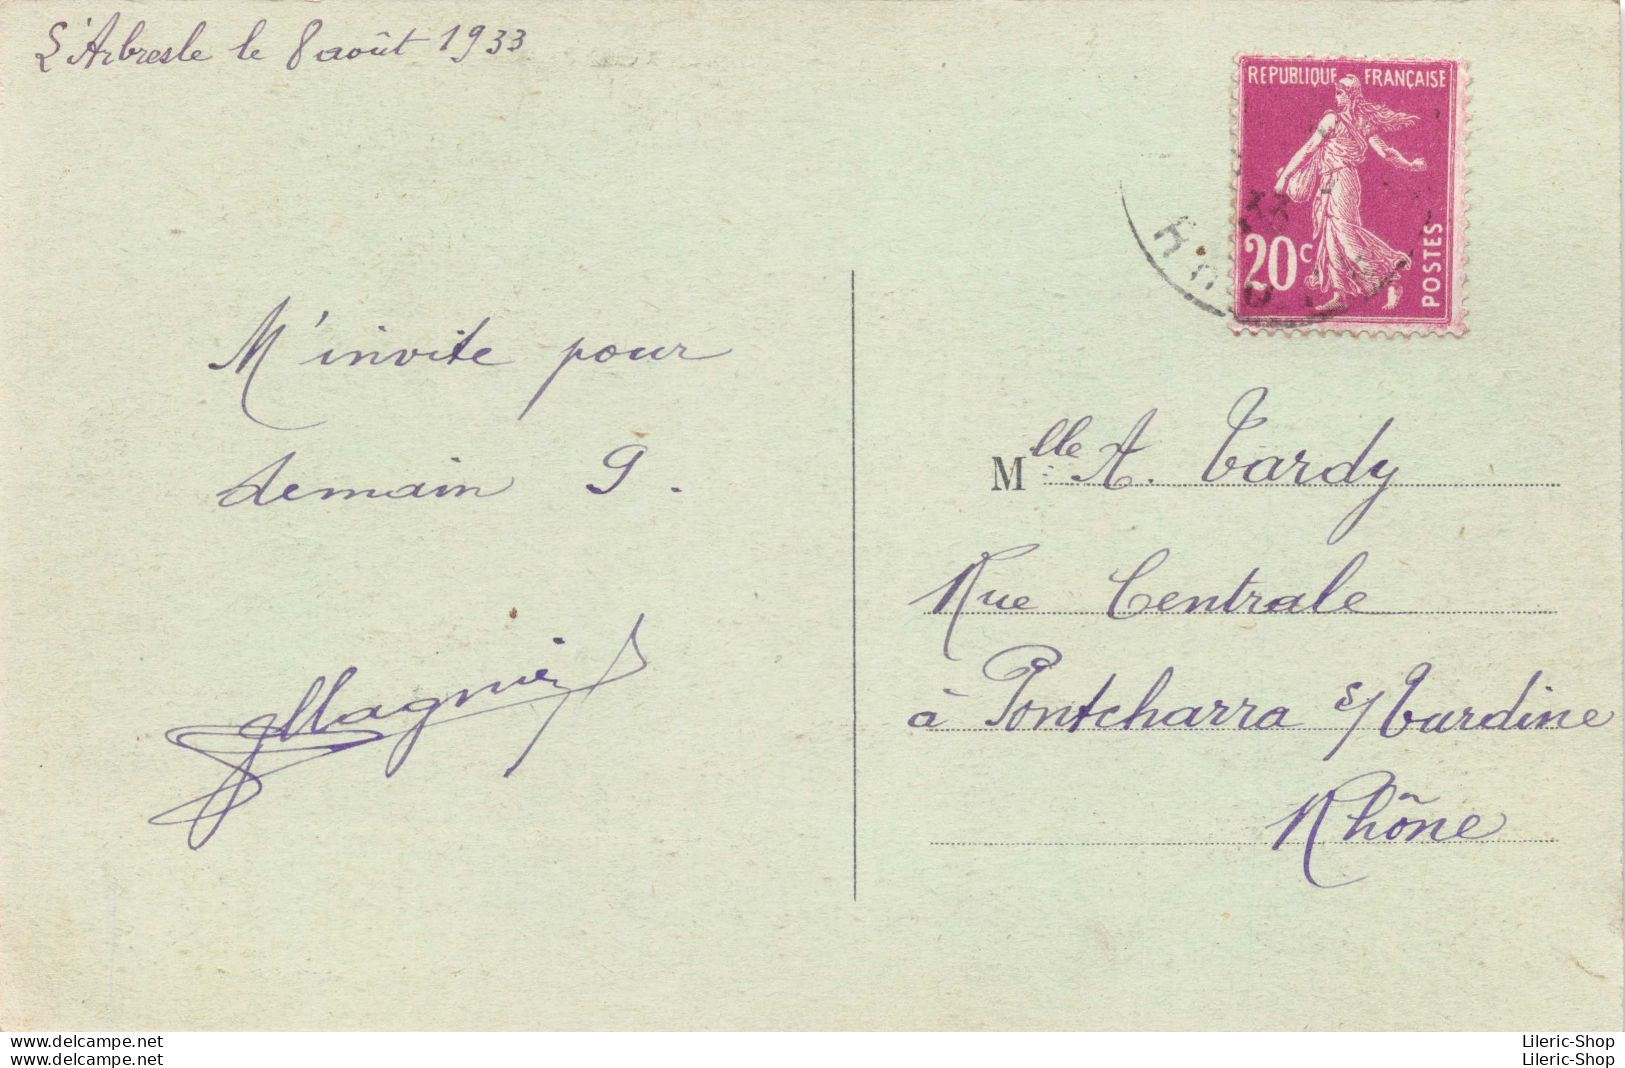 L'Arbresle le 8 août 1933
REPUBLIQUE FRANÇAISE
20c
POSTES
33
RHÔ
M'invite pour
demain 9.
Magnin
Mlle A. Tardy
Rue Centrale
à Pontcharra s/Turdine
Rhône
www.delcampe.net
www.delcampe.net
Lileric-Shop
Lileric-Shop